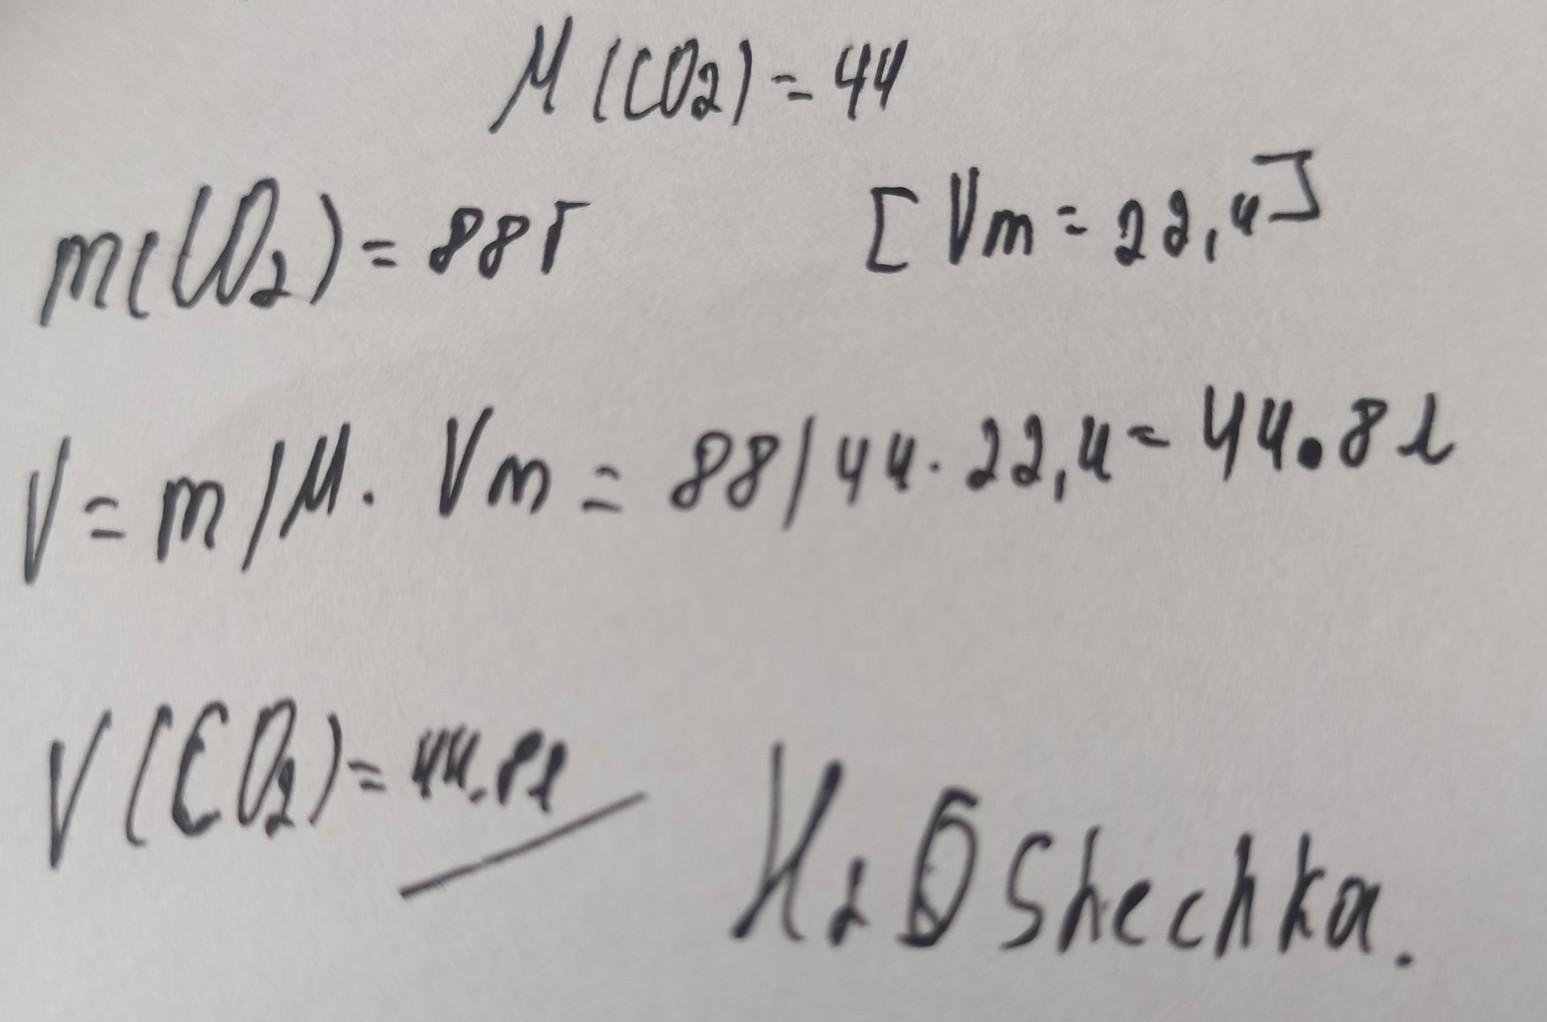 M(CO2)=44
m(CO2)=88г [Vm=22,4]
V=m/M. Vm=88/44.22,4=44.8l
V(CO2)=44.8l
H2OShechka.